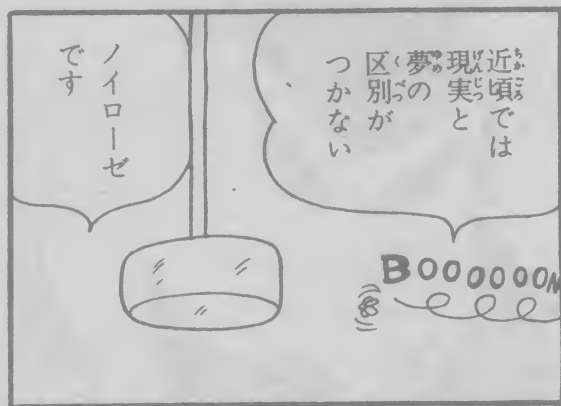 近頃では
現実と
夢の
区別が
つかない
ノイローゼ
です
BOOOOOON